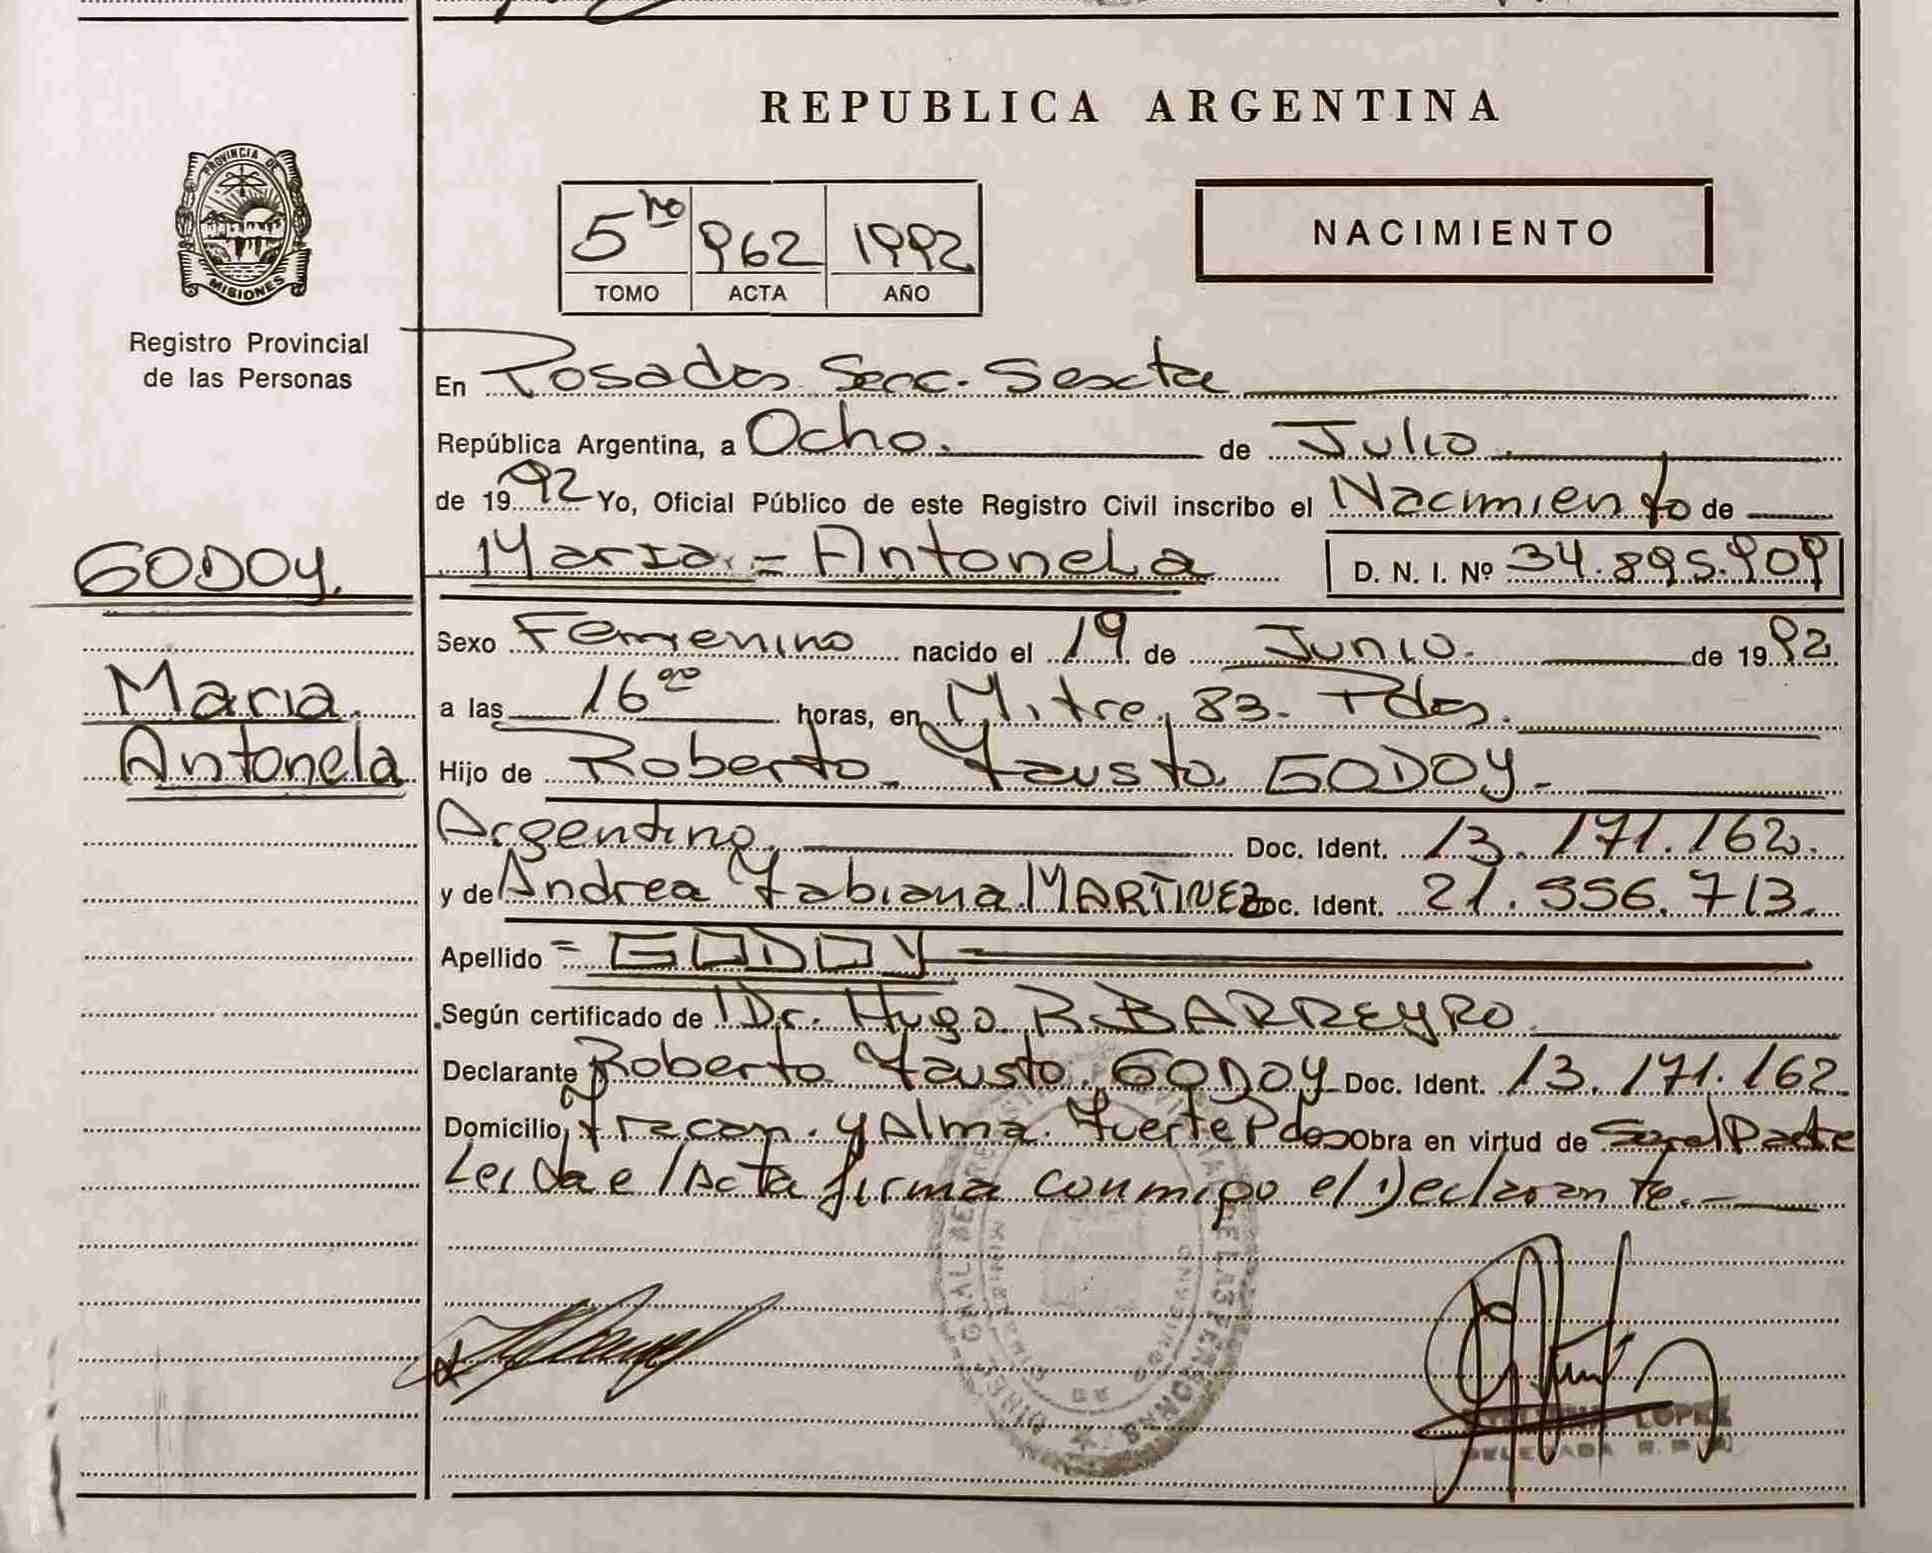 REPUBLICA ARGENTINA
PROVINCIA DE
MISIONES
Registro Provincial
de las Personas
5to 962 1992
TOMO ACTA AÑO
NACIMIENTO
En Posadas Secc. Sexta
República Argentina, a Ocho. de Julio
de 1992 Yo, Oficial Público de este Registro Civil inscribo el Nacimiento de
GODOY.
Maria = Antonela D. N. I. Nº 34.895.909
Sexo Femenino nacido el 19 de Junio. de 1992
Maria
a las 16 horas, en Mitre 83. Pdas.
Antonela
Hijo de Roberto Fausto GODOY.
Argentino. Doc. Ident. 13.171.162.
y de Andrea Fabiana MARTINEZ Doc. Ident. 21.556.713.
Apellido = GODOY
Según certificado de Dr. Hugo R. BARREYRO
Declarante Roberto Fausto GODOY Doc. Ident. 13.171.162
Domicilio y Alma Fuerte Pdas Obra en virtud de Ser el Padre
Leida el Acta firma conmigo el Declarante.
LOPEZ
DELEGADA R. P. P.